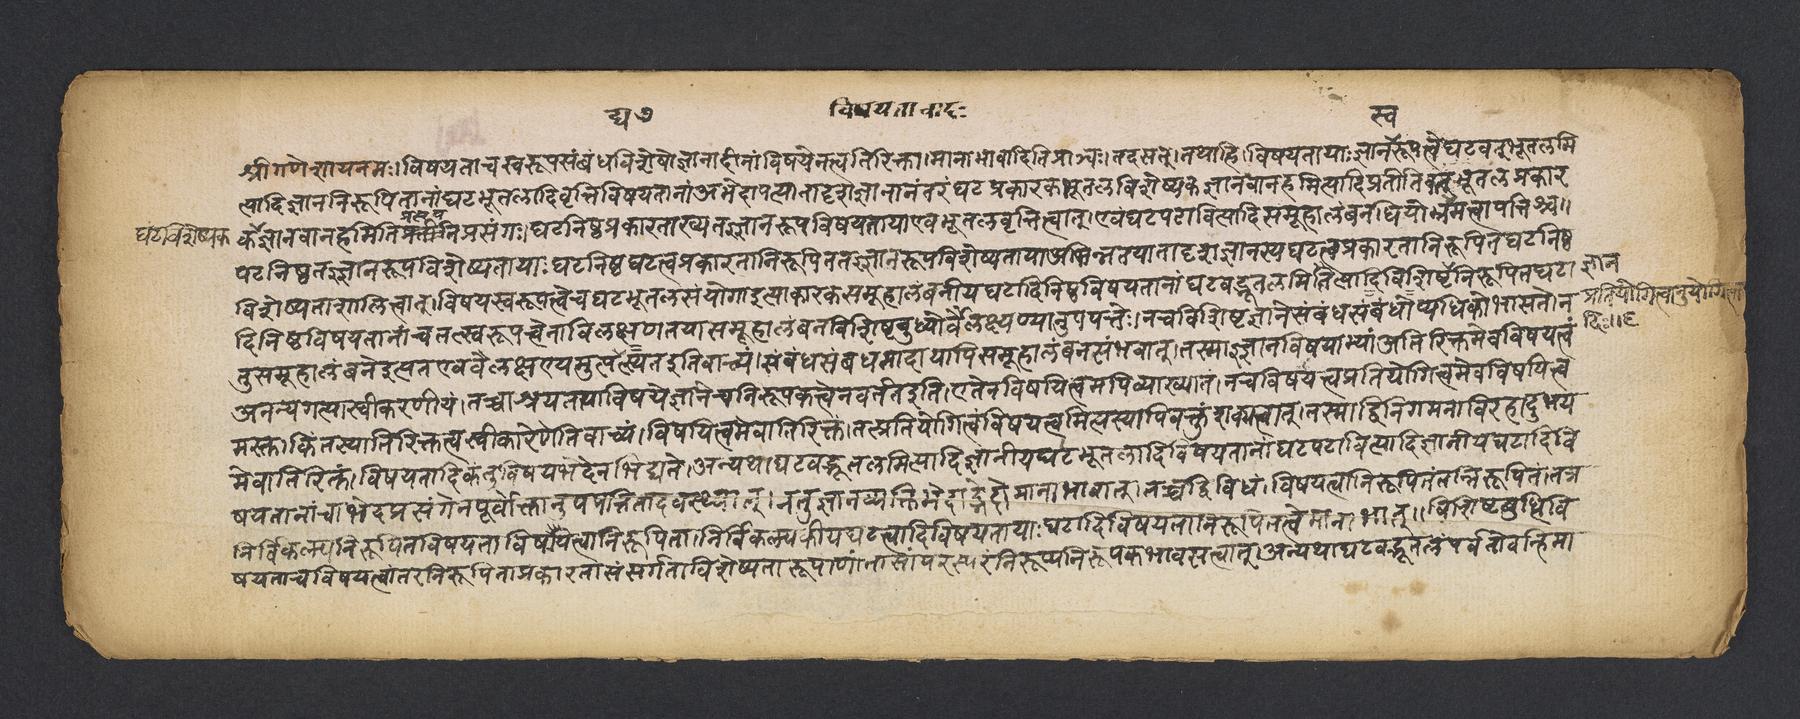 द्य ७ विषयतावादः स्व
श्रीगणेशायनमः।विषयताचस्वरूपसंबंधविशेषोज्ञानादीनांविषयेनत्वतिरिक्ता।मानाभावादितिप्राञ्चः।तदसत्।तथाहि।विषयतायाःज्ञानरूपत्वेघटवद्भूतलमि
त्यादिज्ञाननिरूपितानांघटभूतलादिवृत्तिविषयतानांअभेदापत्त्यातादृशज्ञानानंतरंघटप्रकारकभूतलविशेष्यकज्ञानवानहमित्यादिप्रतीतिवत्भूतलप्रकार
घटविशेष्यक
कज्ञानवानहमितिप्रतीतिप्रसंगः।घटनिष्ठप्रकारताख्यतज्ज्ञानरूपविषयतायाएवभूतलवृत्तित्वात्।एवंघटपटावित्यादिसमूहालंबनधियोर्भ्रमत्वापत्तिश्च॥
पटनिष्ठतज्ज्ञानरूपविशेष्यतायाःघटनिष्ठघटत्वप्रकारतानिरूपिततज्ज्ञानरूपविशेष्यतायाअभिन्नतयातादृशज्ञानस्यघटत्वप्रकारतानिरूपितघटनिष्ठ
विशेष्यताशालित्वात्।विषयस्वरूपत्वेचघटभूतलसंयोगाइत्याकारकसमूहालंबनीयघटादिनिष्ठविषयतानांघटवद्भूतलमितित्यादिविशिष्टज्ञाननिरूपितघटा
ज्ञान
प्रतियोगित्वानुयोगित्वा
दिः॥६
दिनिष्ठविषयतानांचतत्स्वरूपत्वेनाविलक्षणतयासमूहालंबनविशिष्टबुध्योर्वैलक्षण्यानुपपत्तेः।नचविशिष्टज्ञानेसंबंधसंबंधोप्यधिकोभासतेन
तुसमूहालंबनेइत्यतएववैलक्षण्यमुपलभ्यतइतिवाच्यं।संबंधसंबंधमादायापिसमूहालंबनसंभवात्।तस्माज्ज्ञानविषयाभ्यांअतिरिक्तमेवविषयत्वं
अनन्यगत्यास्वीकरणीयं।तच्चाश्रयतयाविषयेज्ञानेचनिरूपकत्वेनवर्ततइति।एतेनविषयित्वमपिव्याख्यातं।नचविषयत्वप्रतियोगित्वमेवविषयित्व
मस्त्तांकिंतस्यातिरिक्तत्वस्वीकारेणेतिवाच्यं।विषयित्वमेवातिरिक्तं।तत्प्रतियोगित्वंविषयत्वमित्यस्यापिवक्तुंशक्यत्वात्।तस्माद्विनिगमनाविरहादुभय
मेवातिरिक्तं।विषयतादिकंतुविषयभेदेनभिद्यते।अन्यथाघटवद्भूतलमित्यादिज्ञानीयघटभूतलादिविषयतानांघटपटावित्यादिज्ञानीयघटादिवि
षयतानांचाभेदप्रसंगेनपूर्वोक्तानुपपत्तितादवस्थ्यात्।नतुज्ञानव्यक्तिभेदाद्भेदोमानाभावात्।तच्चद्विविधं।विषयत्वानिरूपितंतन्निरूपितं।तत्र
निर्विकल्पनिरूपितविषयताविषयित्वानिरूपिता।निर्विकल्पकीयघटत्वादिविषयतायाःघटादिविषयतानिरूपितत्वेमानाभात्॥विशिष्टबुधिवि
षयताचविषयत्वांतरनिरूपिताप्रकारतासंसर्गताविशेष्यतारूपाणांतासांपरस्परंनिरूप्यनिरूपकभावसत्वात्।अन्यथाघटवद्भूतलंपर्वतोवन्हिमा